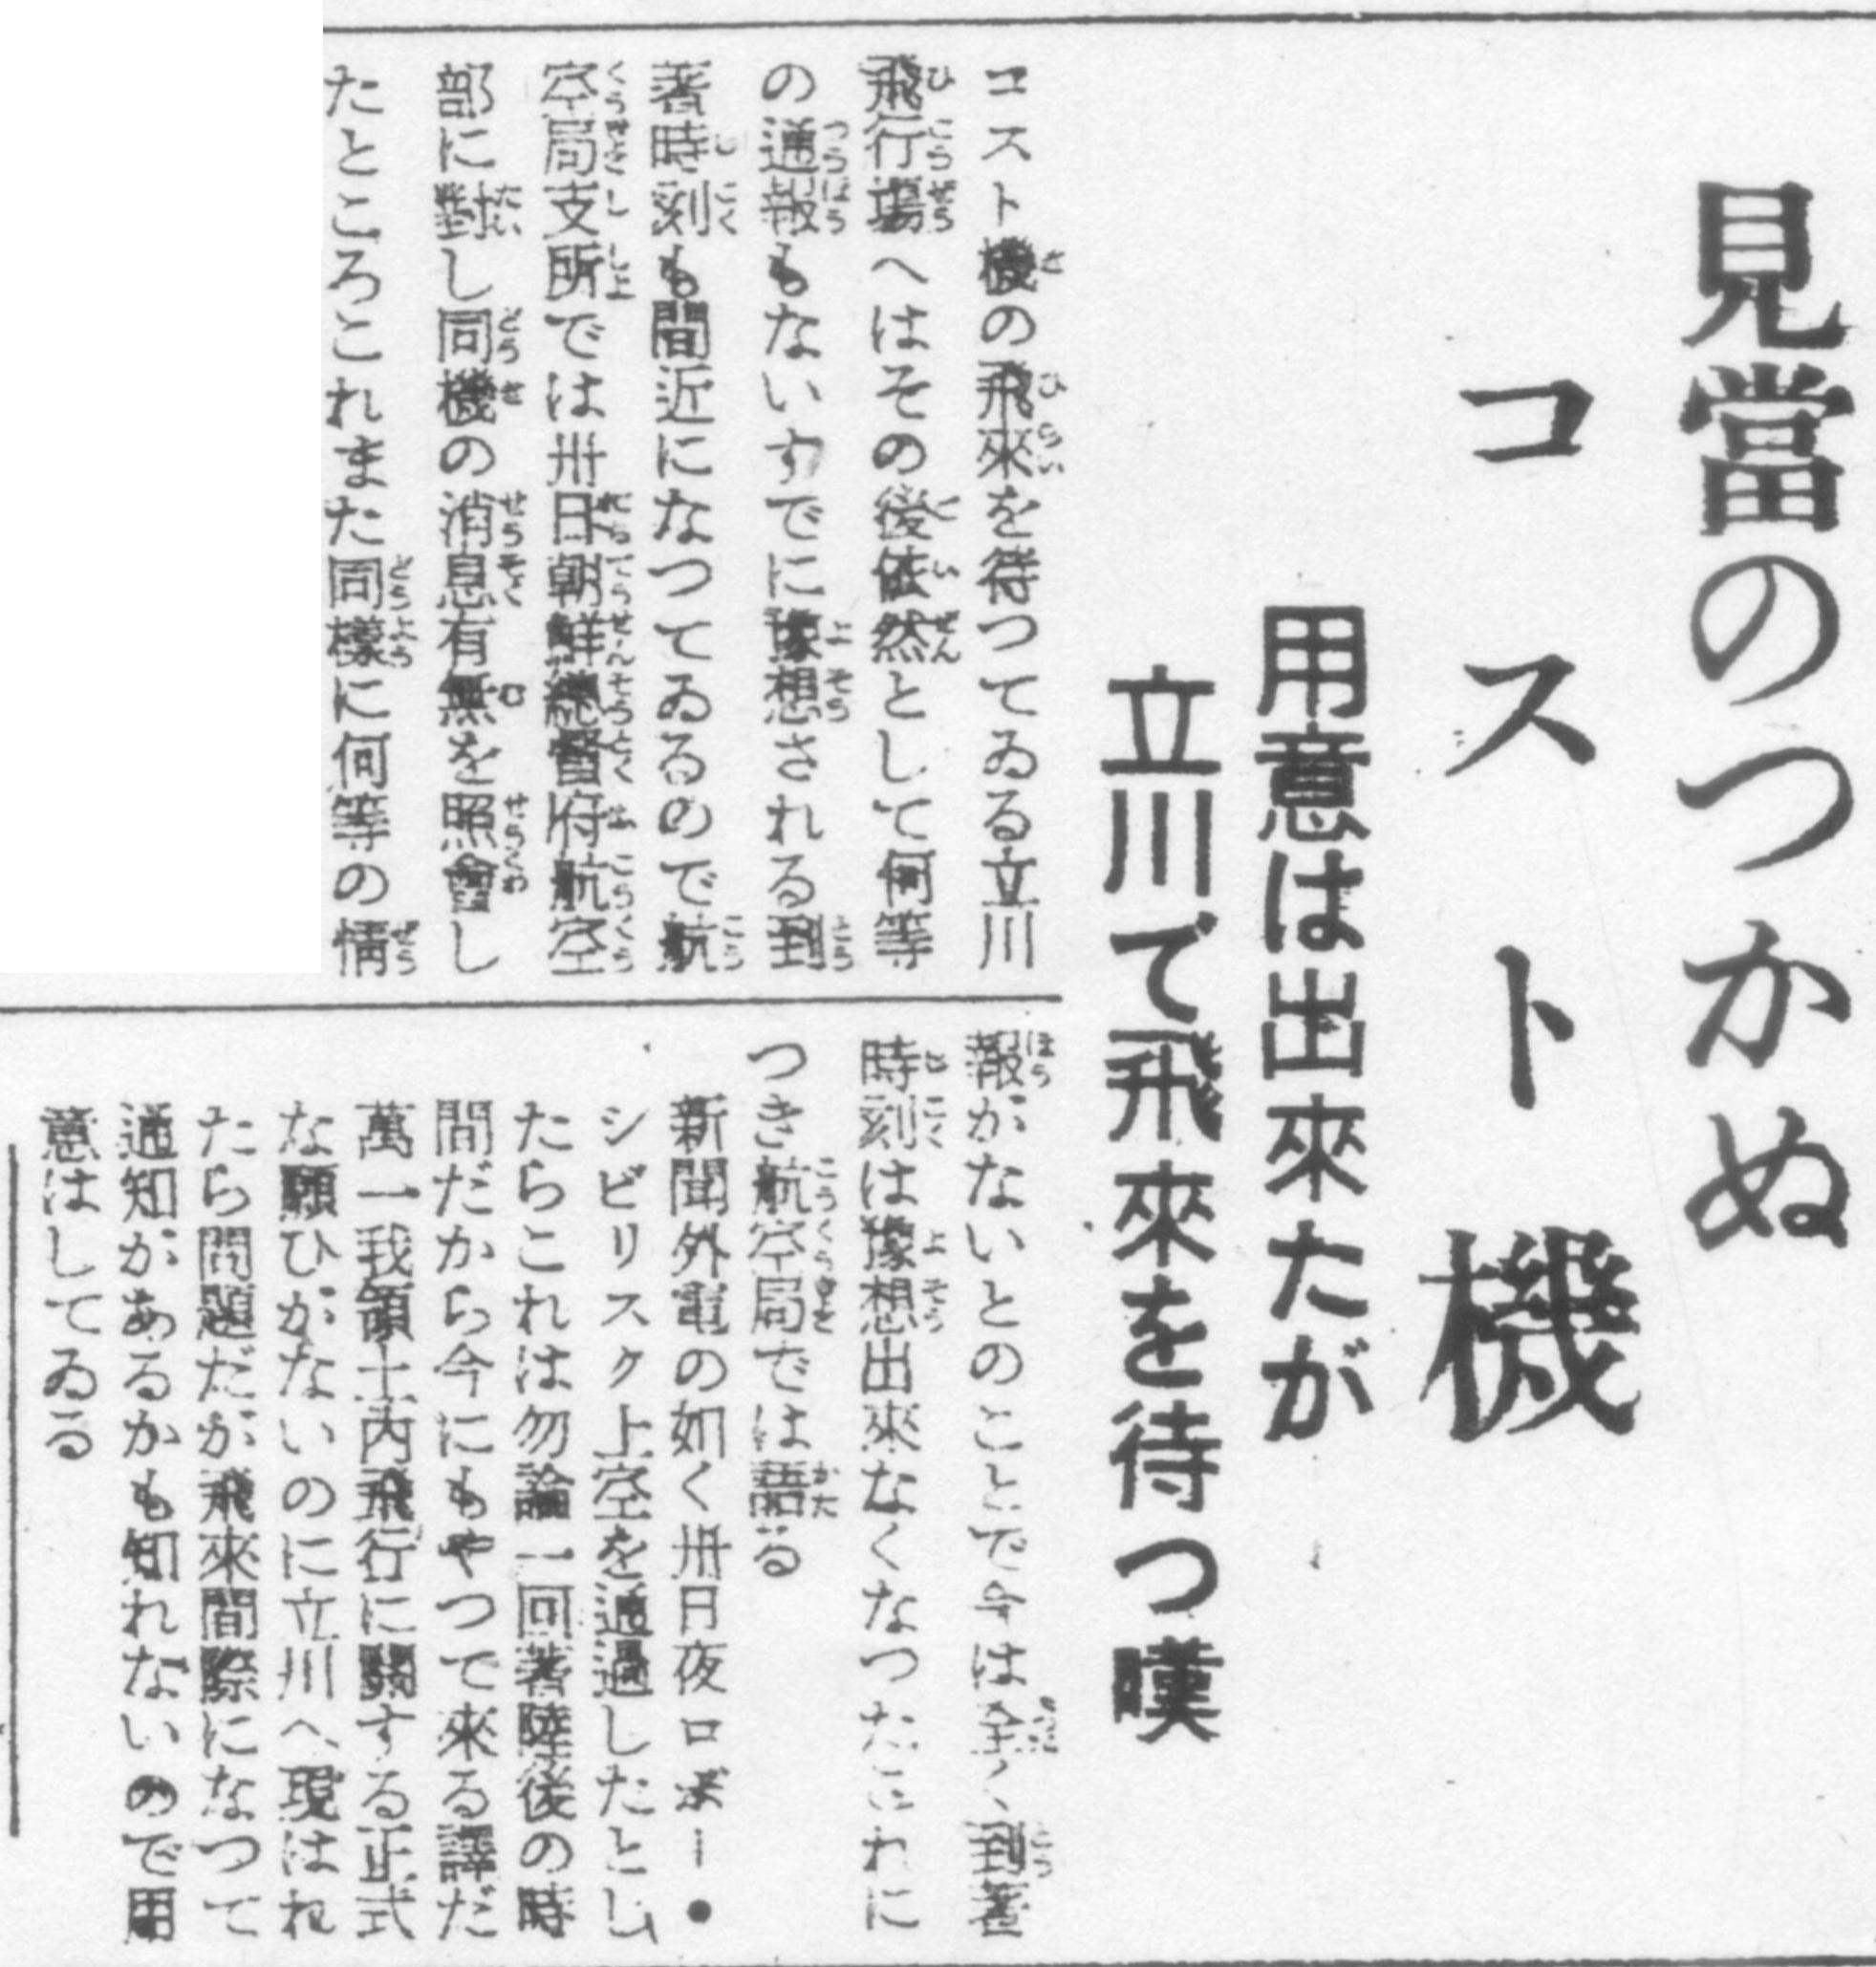 見當のつかぬ
コスト機
用意は出來たが
立川で飛來を待つ嘆
コスト機の飛來を待つてゐる立川
飛行場へはその後依然として何等
の通報もないすでに豫想される到
著時刻も間近になつてゐるので航
空局支所では卅日朝鮮總督府航空
部に對し同機の消息有無を照會し
たところこれまた同樣に何等の情
報がないとのことで今は全く到著
時刻は豫想出來なくなつたこれに
つき航空局では語る
新聞外電の如く卅日夜ロボー・
シビリスク上空を通過したとし
たらこれは勿論一回著陸後の時
間だから今にもやつて來る譯だ
萬一我領土內飛行に關する正式
な願ひがないのに立川へ現はれ
たら問題だが飛來間際になつて
通知があるかも知れないので用
意はしてゐる